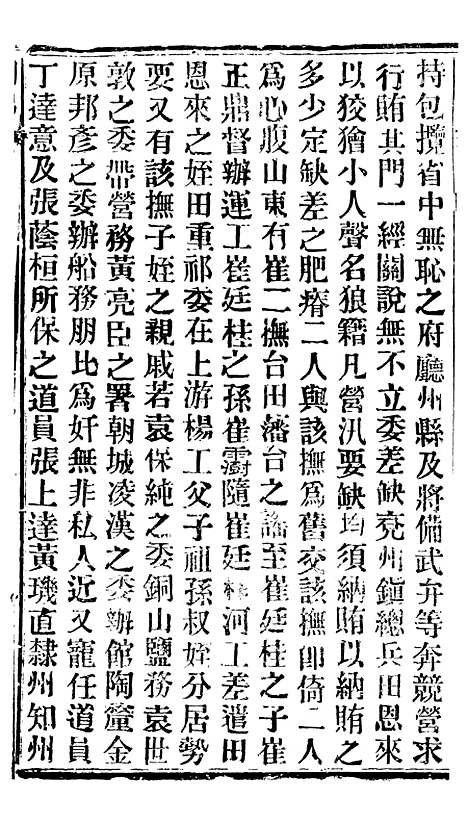 持包攬省中無恥之府廳州縣及將備武弁等奔競營求
行賄其門一經關說無不立委差缺兗州鎮總兵田恩來
以狡獪小人聲名狼籍凡營汛要缺均須納賄以納賄之
多少定缺差之肥瘠二人與該撫爲舊交該撫卽倚二人
爲心腹山東有崔二撫台田藩台之謠至崔廷桂之子崔
正鼎督辦運工崔廷桂之孫崔澍隨崔廷桂河工差遣田
恩來之姪田重祁委在上游楊工父子祖孫叔姪分居勢
要又有該撫子姪之親戚若袁保純之委銅山鹽務袁世
敦之委帶營務黃亮臣之署朝城凌漢之委辦館陶釐金
原邦彥之委辦船務朋比爲奸無非私人近又寵任道員
丁達意及張蔭桓所保之道員張上達黃璣直隸州知州